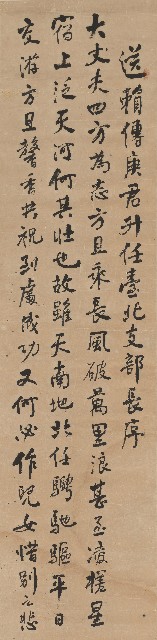 送賴傳庚君升任臺北支部長序
大丈夫四方為志方且乘長風破萬里浪甚至凌槎星
宿上泛天河何其壯也故雖天南地北任騁馳驅平日
交游方且馨香共祝到處成功又何必作兒女惜別之悲